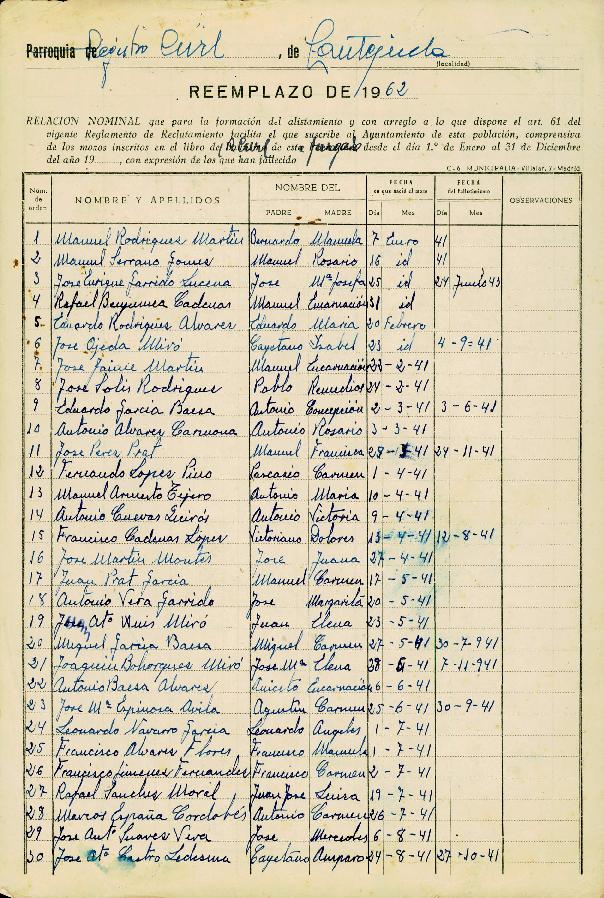 Parroquia de Registro Civil, de Lantejuela
(localidad)
REEMPLAZO DE 1962
RELACION NOMINAL que para la formación del alistamiento y con arreglo a lo que dispone el art. 61 del
vigente Reglamento de Reclutamiento facilita el que suscribe al Ayuntamiento de esta población, comprensiva
de los mozos inscritos en el libro de de esta Juzgado desde el día 1.º de Enero al 31 de Diciembre
del año 19......, con expresión de los que han fallecido
C-6 MUNICIPALIA-Villalar, 7-Madrid
Núm. de orden NOMBRE Y APELLIDOS NOMBRE DEL PADRE MADRE FECHA en que nació el mozo Día Mes FECHA del fallecimiento Día Mes OBSERVACIONES
1 Manuel Rodrigues Martin Bernardo Manuela 7 Enero 41
2 Manuel Serrano Gomes Manuel Rosario 16 id 41
3 Jose Enrique Garrido Lucena Jose Mª Josefa 25 id 24 Junio 43
4 Rafael Benjumea Cadenas Manuel Encarnación 31 id
5 Eduardo Rodrigues Alvares Eduardo Maria 20 Febrero
6 Jose Ojeda Miró Cayetano Isabel 23 id 4-9-41
7 Jose Jaime Martin Manuel Encarnación 22-2-41
8 Jose Solis Rodrigues Pablo Remedios 24-2-41
9 Eduardo Garcia Baesa Antonio Concepción 2-3-41 3-6-41
10 Antonio Alvares Carmona Antonio Rosario 3-3-41
11 Jose Peres Prat Manuel Francisca 28-3-41 24-11-41
12 Fernando Lopes Pino Pascasio Carmen 1-4-41
13 Manuel Armesto Tejero Antonio Maria 10-4-41
14 Antonio Cuevas Quirós Antonio Victoria 9-4-41
15 Francisco Cadenas Lopes Victoriano Dolores 13-4-41 12-8-41
16 Jose Martin Montes Jose Juana 27-4-41
17 Juan Prat Garcia Manuel Carmen 17-5-41
18 Antonio Vera Garrido Jose Margarita 20-5-41
19 Atº Miró Juan Elena 23-5-41
20 Miguel Garcia Baesa Miguel Carmen 27-5-41 30-7-941
21 Joaquin Bohorques Miró Jose Mª Elena 28-5-41 7-11-941
22 Antonio Baesa Alvares Aniceto Encarnación 6-6-41
23 Jose Mª Espinosa Avila Agustin Carmen 25-6-41 30-9-41
24 Leonardo Navarro Garcia Leonardo Angeles 1-7-41
25 Francisco Alvares Flores Francisco Manuela 1-7-41
26 Francisco Jimenes Fernandes Francisco Carmen 2-7-41
27 Rafael Sanches Moral Juan Jose Luisa 19-7-41
28 Marcos España Cordobés Antonio Carmen 26-7-41
29 Jose Antº Suares Vera Jose Mercedes 6-8-41
30 Jose Atº Castro Ledesma Cayetano Amparo 24-8-41 27-10-41